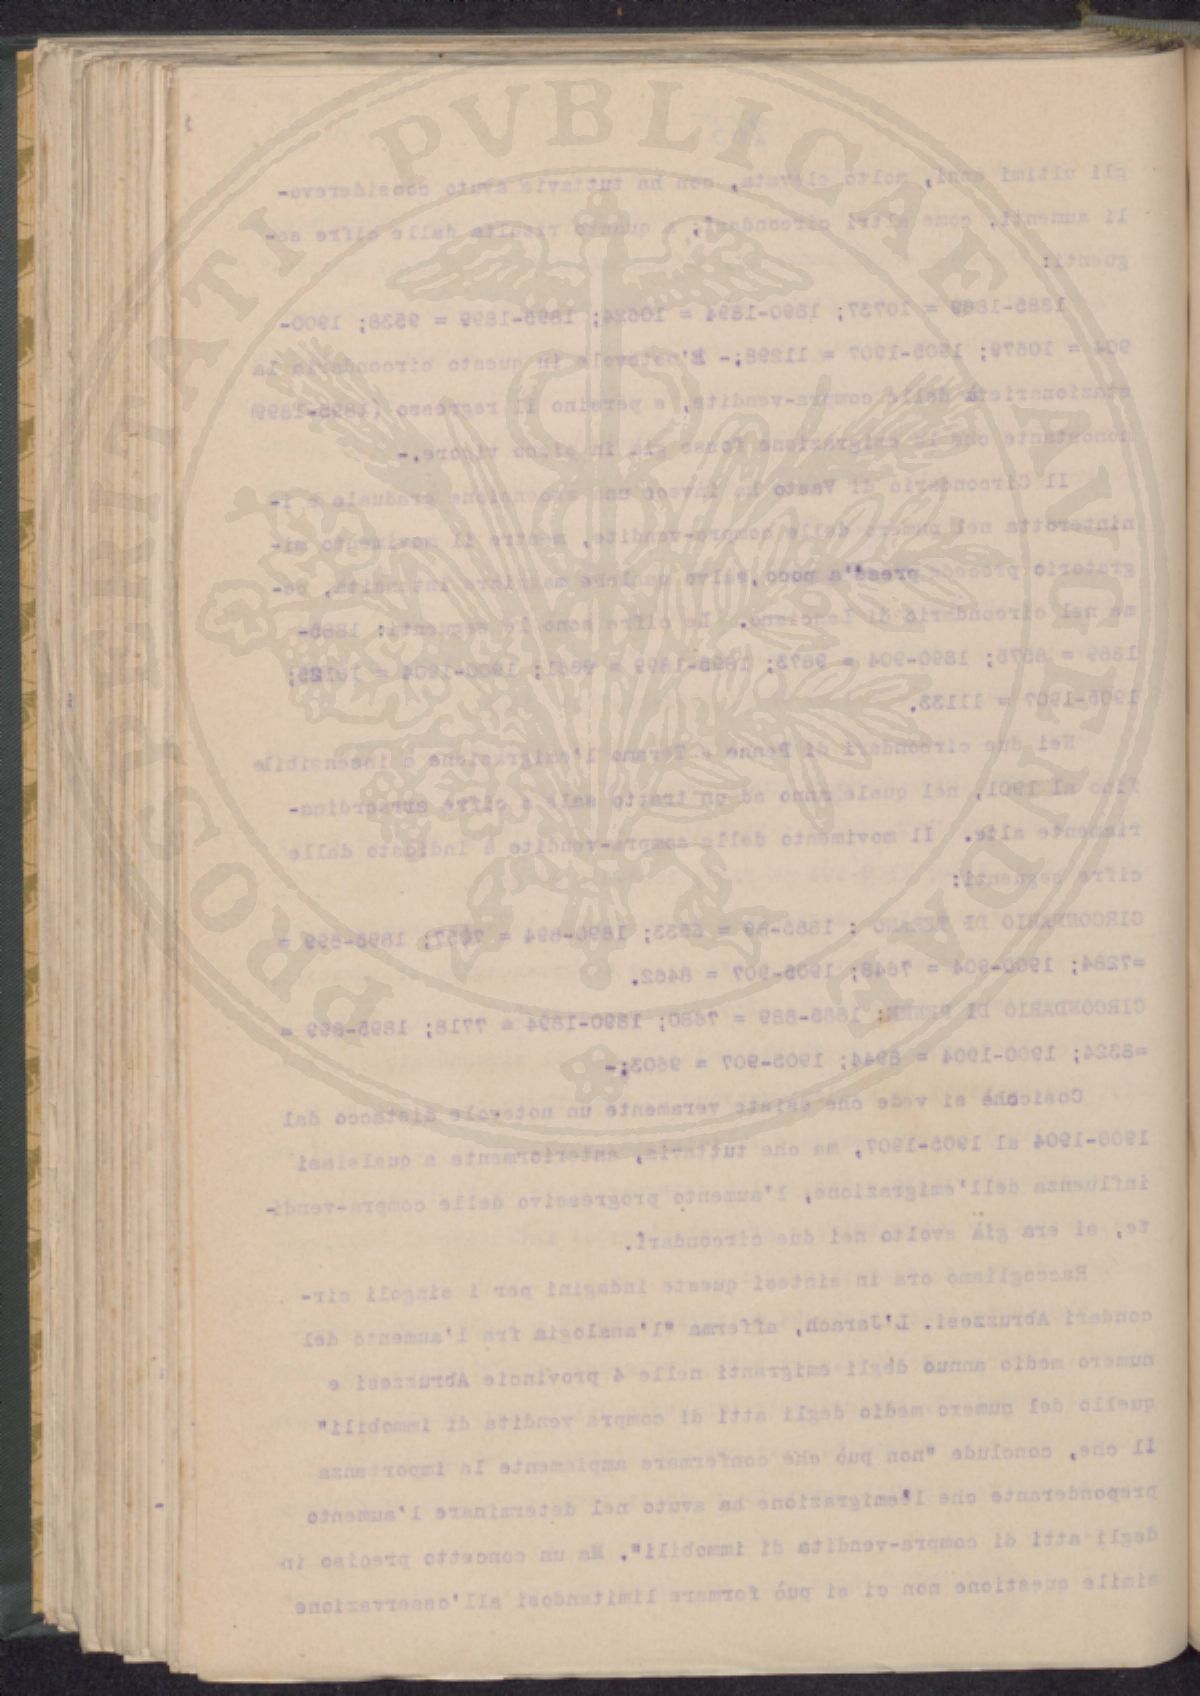 PVBLICAE AVGENDAE PROSPERITATI
gli ultimi anni, molto elevata, non ha tuttavia avuto considerevo-
li aumenti, come altri circondarî; a quanto risulta dalle cifre se-
guenti:
1885-1889 = 10737; 1890-1894 = 10624; 1895-1899 = 9538; 1900-
904 = 10679; 1905-1907 = 11298;- E'notevole in questo circondario la
stazionarietà delle compra-vendite, e persino il regresso (1895-1899)
nonostante che la emigrazione fosse già in pieno vigore.-
Il Circondario di Vasto ha invece una ascensione graduale e i-
ninterotta nel numero delle compra-vendite, mentre il movimento mi-
gratorio procede press'a poco, salvo qualche maggiore intensità, co-
me nel circondario di Lanciano. Le cifre sono le seguenti: 1885-
1889 = 8575; 1890-904 = 9673; 1895-1899 = ; 1900-1904 = ;
1905-1907 = 11133.
Nei due circondari di Penne e Teramo l'emigrazione è insensibile
fino al 1901, nel quale anno ad un tratto sale a cifre straordina-
riamente alte. Il movimento delle compra-vendite è indicato dalle
cifre seguenti:
CIRCONDARIO DI TERAMO : 1885-89 = ; 1890-894 = ; 1895-899 =
=7284; 1900-904 = 7648; 1905-907 = 8462.
CIRCONDARIO DI PENNE: 1885-889 = 7680; 1890-1894 = 7718; 1895-899 =
=8324; 1900-1904 = 8944; 1905-907 = 9603;-
Cosicchè si vede che esiste veramente un notevole distacco dal
1900-1904 al 1905-1907, ma che tuttavia, anteriormente a qualsiasi
influenza dell'emigrazione, l'aumento progressivo delle compra-vendi-
te, si era già svolto nei due circondarî.
Raccogliamo ora in sintesi queste indagini per i singoli cir-
condari Abruzzesi. L'Jarach, afferma "l'analogia fra l'aumento del
numero medio annuo degli emigranti nelle 4 provincie Abruzzesi e
quello del numero medio degli atti di compra vendita di immobili"
Il che, conclude "non può che confermare ampiamente la importanza
preponderante che l'emigrazione ha avuto nel determinare l'aumento
degli atti di compra-vendita di immobili". Ma un concetto preciso in
simile questione non ci si può formare limitandosi all'osservazione